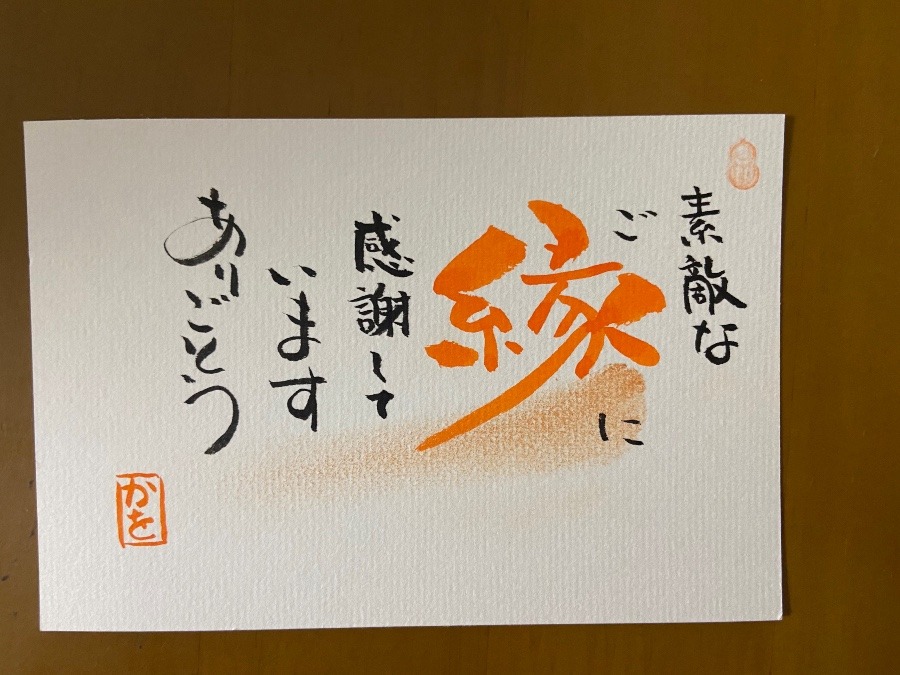 素敵な
ご縁に
感謝して
います
ありごとう
かを